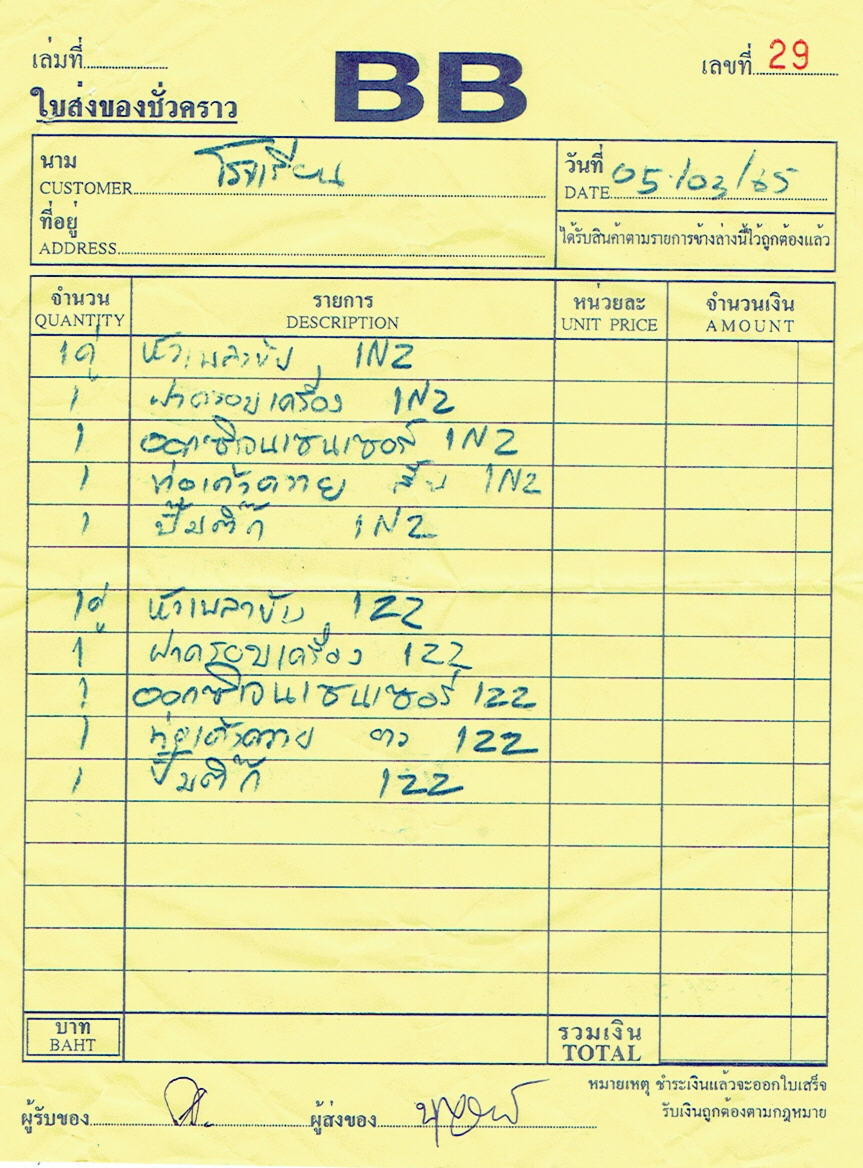 เล่มที่
BB
เลขที่ 29
ใบส่งของชั่วคราว
นาม
CUSTOMER
โรงเรียน
วันที่
DATE 05/03/65
ที่อยู่
ADDRESS
ได้รับสินค้าตามรายการข้างล่างนี้ไว้ถูกต้องแล้ว
จำนวน รายการ หน่วยละ จำนวนเงิน
QUANTITY DESCRIPTION UNIT PRICE AMOUNT
1คู่ หัวเพลาขับ 1NZ
1 ฝาครอบเครื่อง 1NZ
1 ออกซิเจนเซนเซอร์ 1NZ
1 ท่อเขาควาย สั้น 1NZ
1 ปั๊มติ๊ก 1NZ
1คู่ หัวเพลาขับ 122
1 ฝาครอบเครื่อง 122
1 ออกซิเจนเซนเซอร์ 122
1 ท่อเขาควาย ยาว 122
1 ปั๊มติ๊ก 122
บาท รวมเงิน
BAHT TOTAL
หมายเหตุ ชำระเงินแล้วจะออกใบเสร็จ
รับเงินถูกต้องตามกฎหมาย
ผู้รับของ ผู้ส่งของ